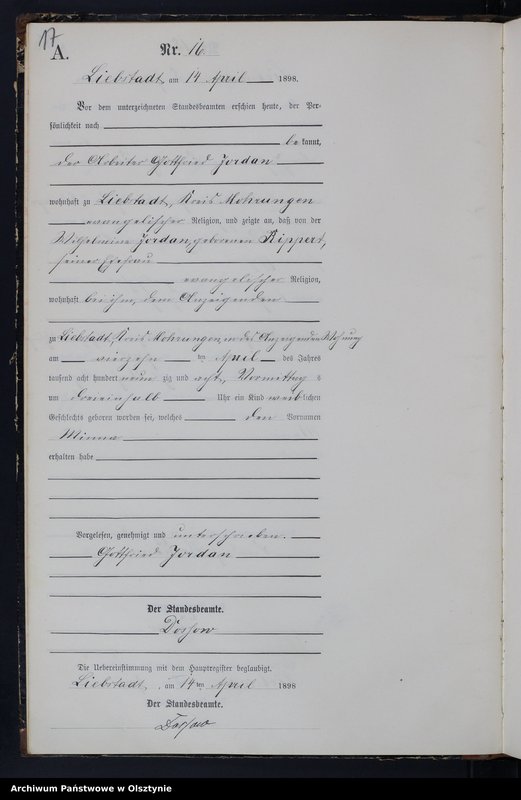 17
A.
Nr. 16
Liebstadt, am 14 April 1898.
Vor dem unterzeichneten Standesbeamten erschien heute, der Per-
sönlichkeit nach
be kannt,
der Arbeiter Gottfried Jordan
wohnhaft zu Liebstadt, Kreis Mohrungen
evangelischer Religion, und zeigte an, daß von der
Wilhelmine Jordan, geborenen Rippert,
seiner Ehefrau
evangelischer Religion,
wohnhaft bei ihm, dem Anzeigenden
zu Liebstadt, Kreis Mohrungen, in des Anzeigenden Wohnung
am vierzehn ten April des Jahres
tausend acht hundert neun zig und acht, Vormittag s
um dreieinhalb Uhr ein Kind weiblichen
Geschlechts geboren worden sei, welches den Vornamen
Minna
erhalten habe
Vorgelesen, genehmigt und unterschrieben.
Gottfried Jordan
Der Standesbeamte.
Dossow
Die Uebereinstimmung mit dem Hauptregister beglaubigt.
Liebstadt, am 14ten April 1898
Der Standesbeamte.
Dossow
Archiwum Państwowe w Olsztynie